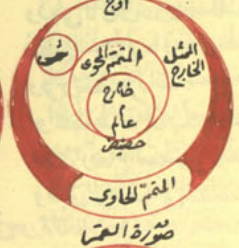 اوج
الممثل
الخارج
المتمم المحوى
خارج
عالم
حضيض
المتمم الحاوى
صورة القمر